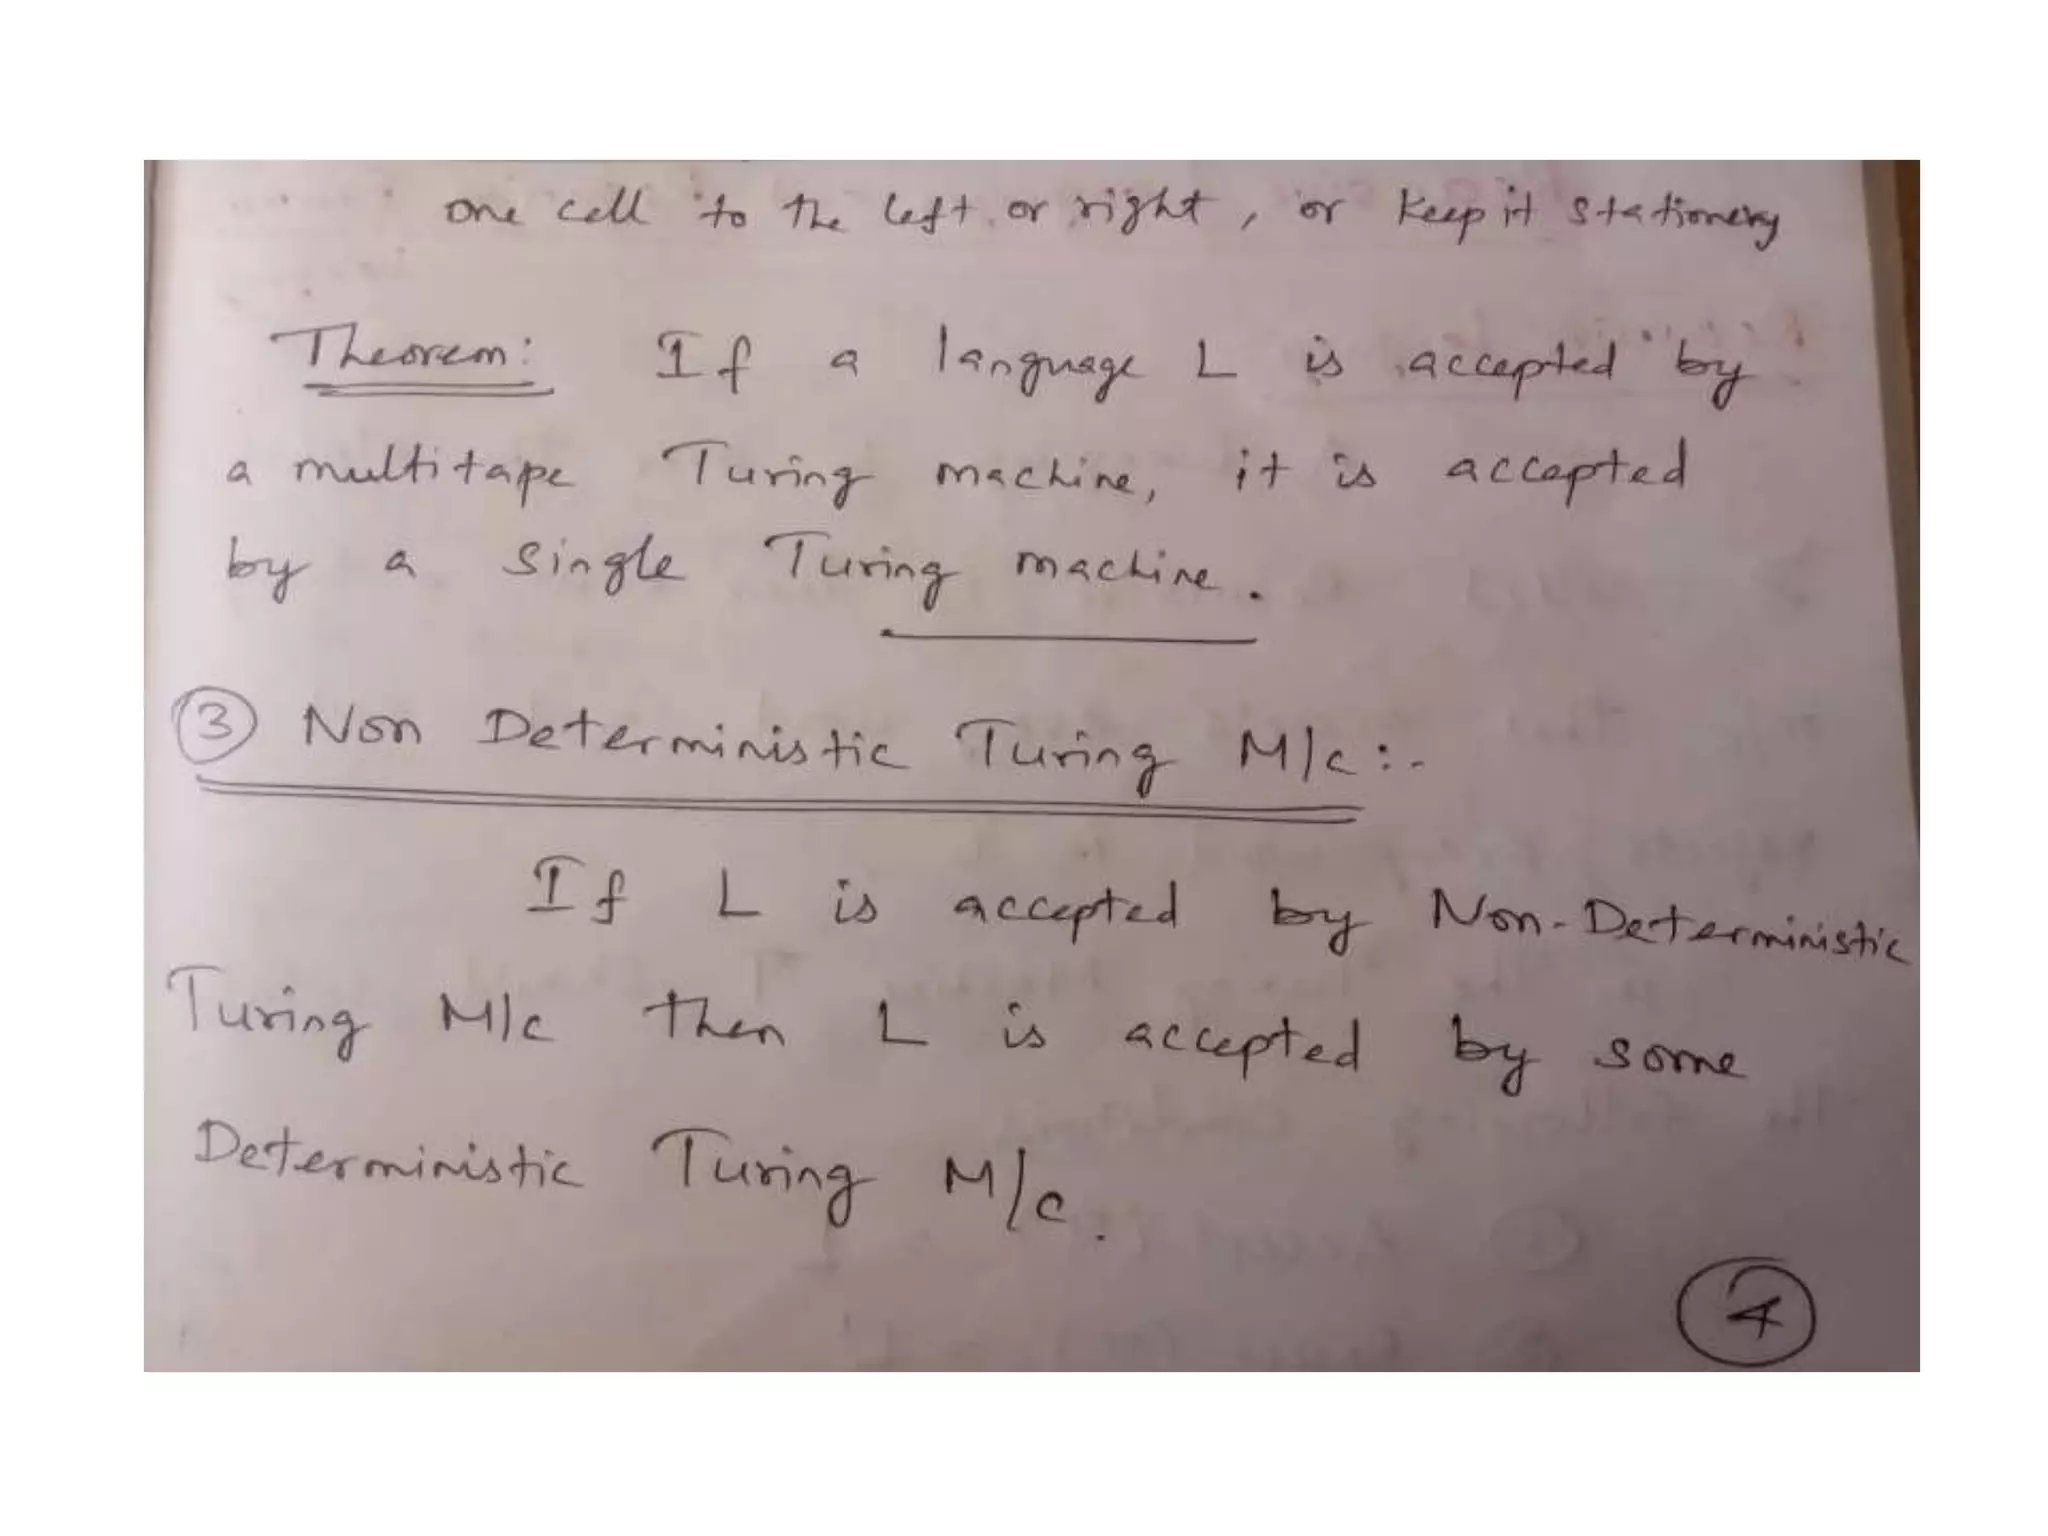 one cell to the left or right, or keep it stationery
Theorem: If a language L is accepted by
a multitape Turing machine, it is accepted
by a single Turing machine.
③ Non Deterministic Turing M/c:-
If L is accepted by Non-Deterministic
Turing M/c then L is accepted by some
Deterministic Turing M/c.
④